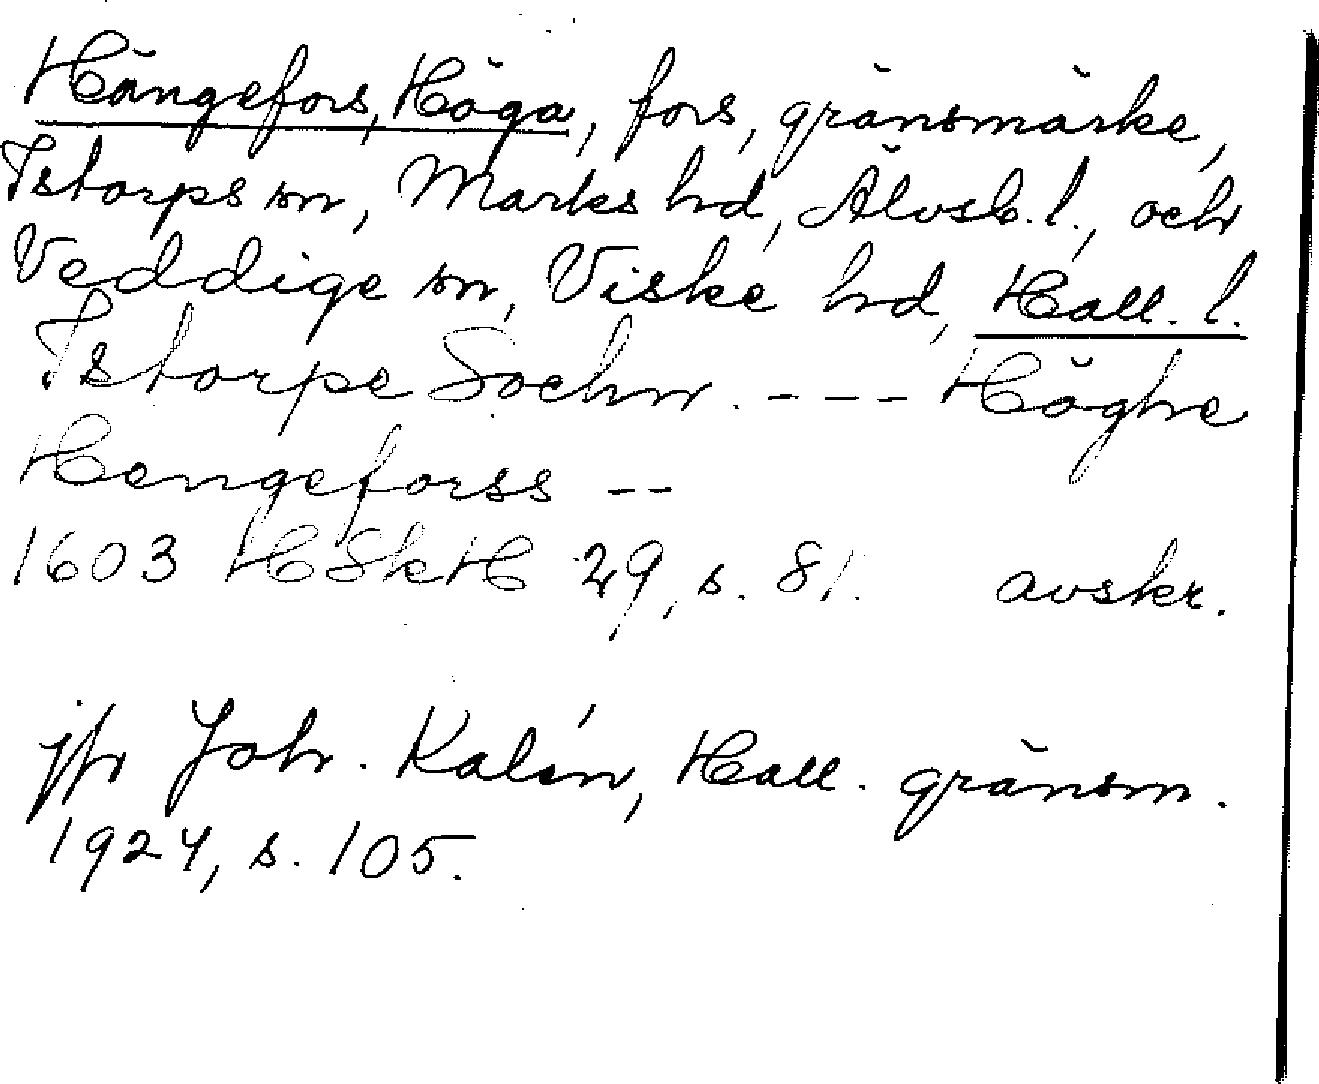 Hängefors, Höga, fors, gränsmärke,
Istorps sn, Marks hd, Älvsb. l., och
Veddige sn, Viske hd, Hall. l.
Istorpe Sochn. ---- Höghe
Hengeforss --
1603 HSkH 29, s. 81. avskr.
jfr Joh. Kalén, Hall. gränsm.
1924, s. 105.